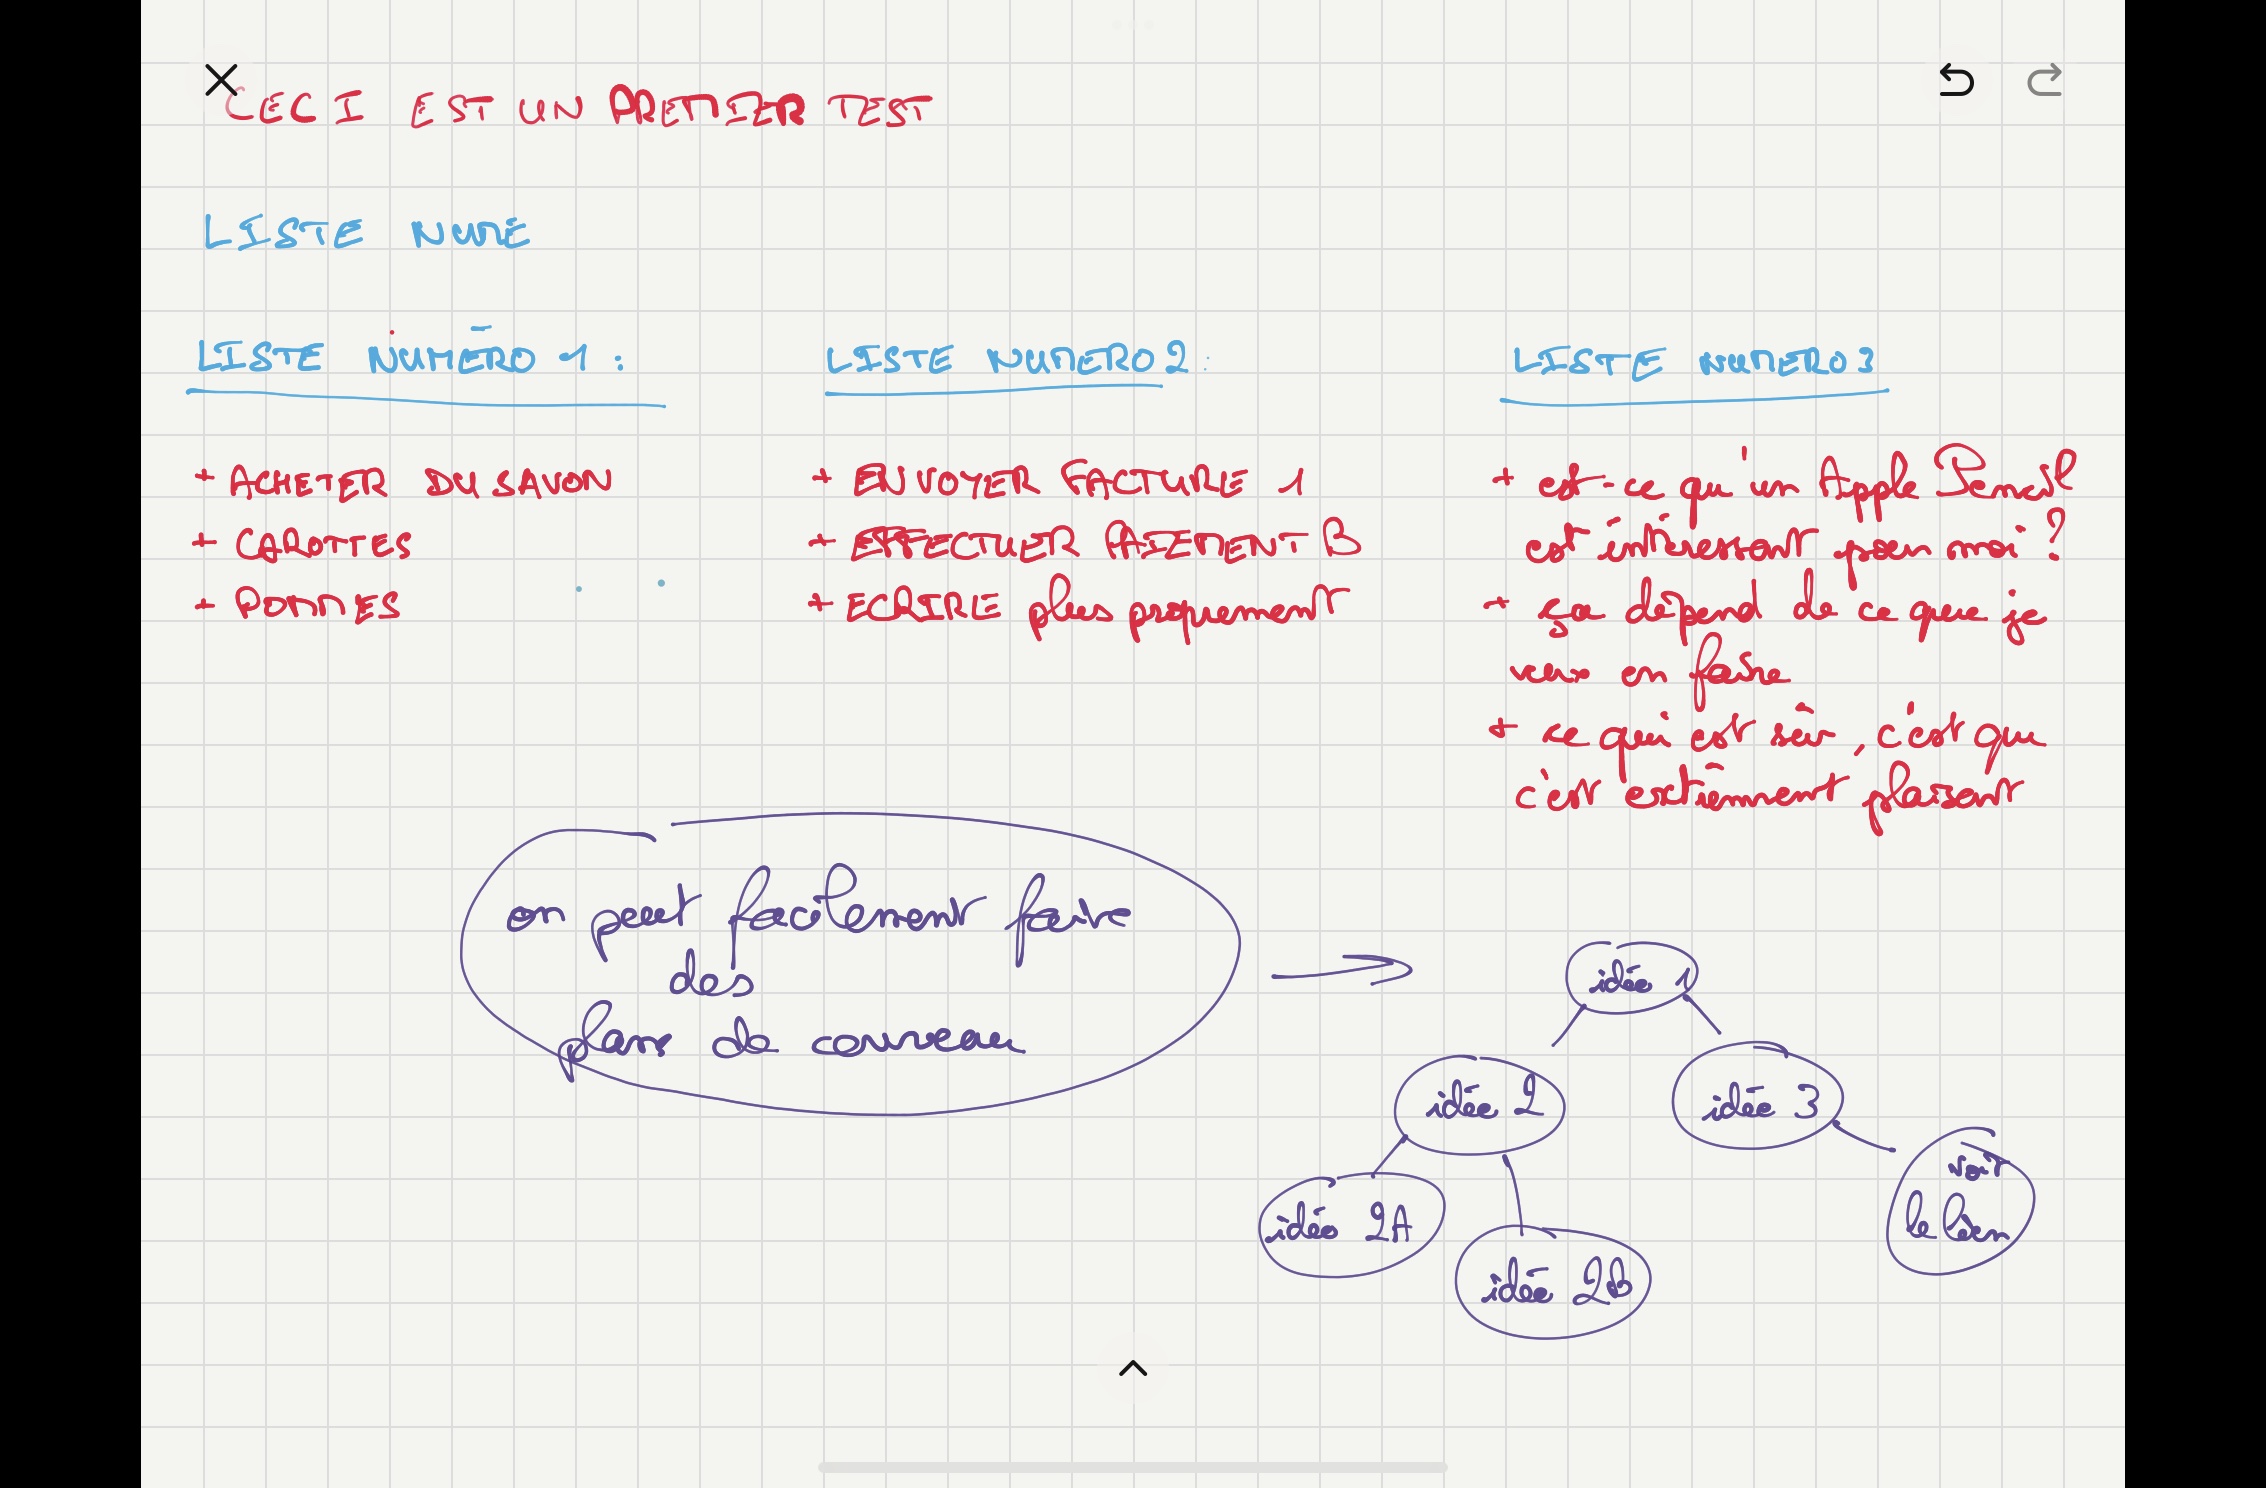 CECI EST UN PREMIER TEST
LISTE NUMÉ
LISTE NUMÉRO 1 :
+ ACHETER DU SAVON
+ CAROTTES
+ POMMES
LISTE NUMERO 2 :
+ ENVOYER FACTURE 1
+ EFFECTUER PAIEMENT B
+ ECRIRE plus proprement
LISTE NUMERO 3
+ est-ce qu'un Apple Pencil
est intéressant pour moi ?
+ ça dépend de ce que je
veux en faire
+ ce qui est sûr, c'est que
c'est extrêmement plaisant
on peut facilement faire
des
plans de cerveau
idée 1
idée 2
idée 3
idée 2A
idée 2B
voir
le lien